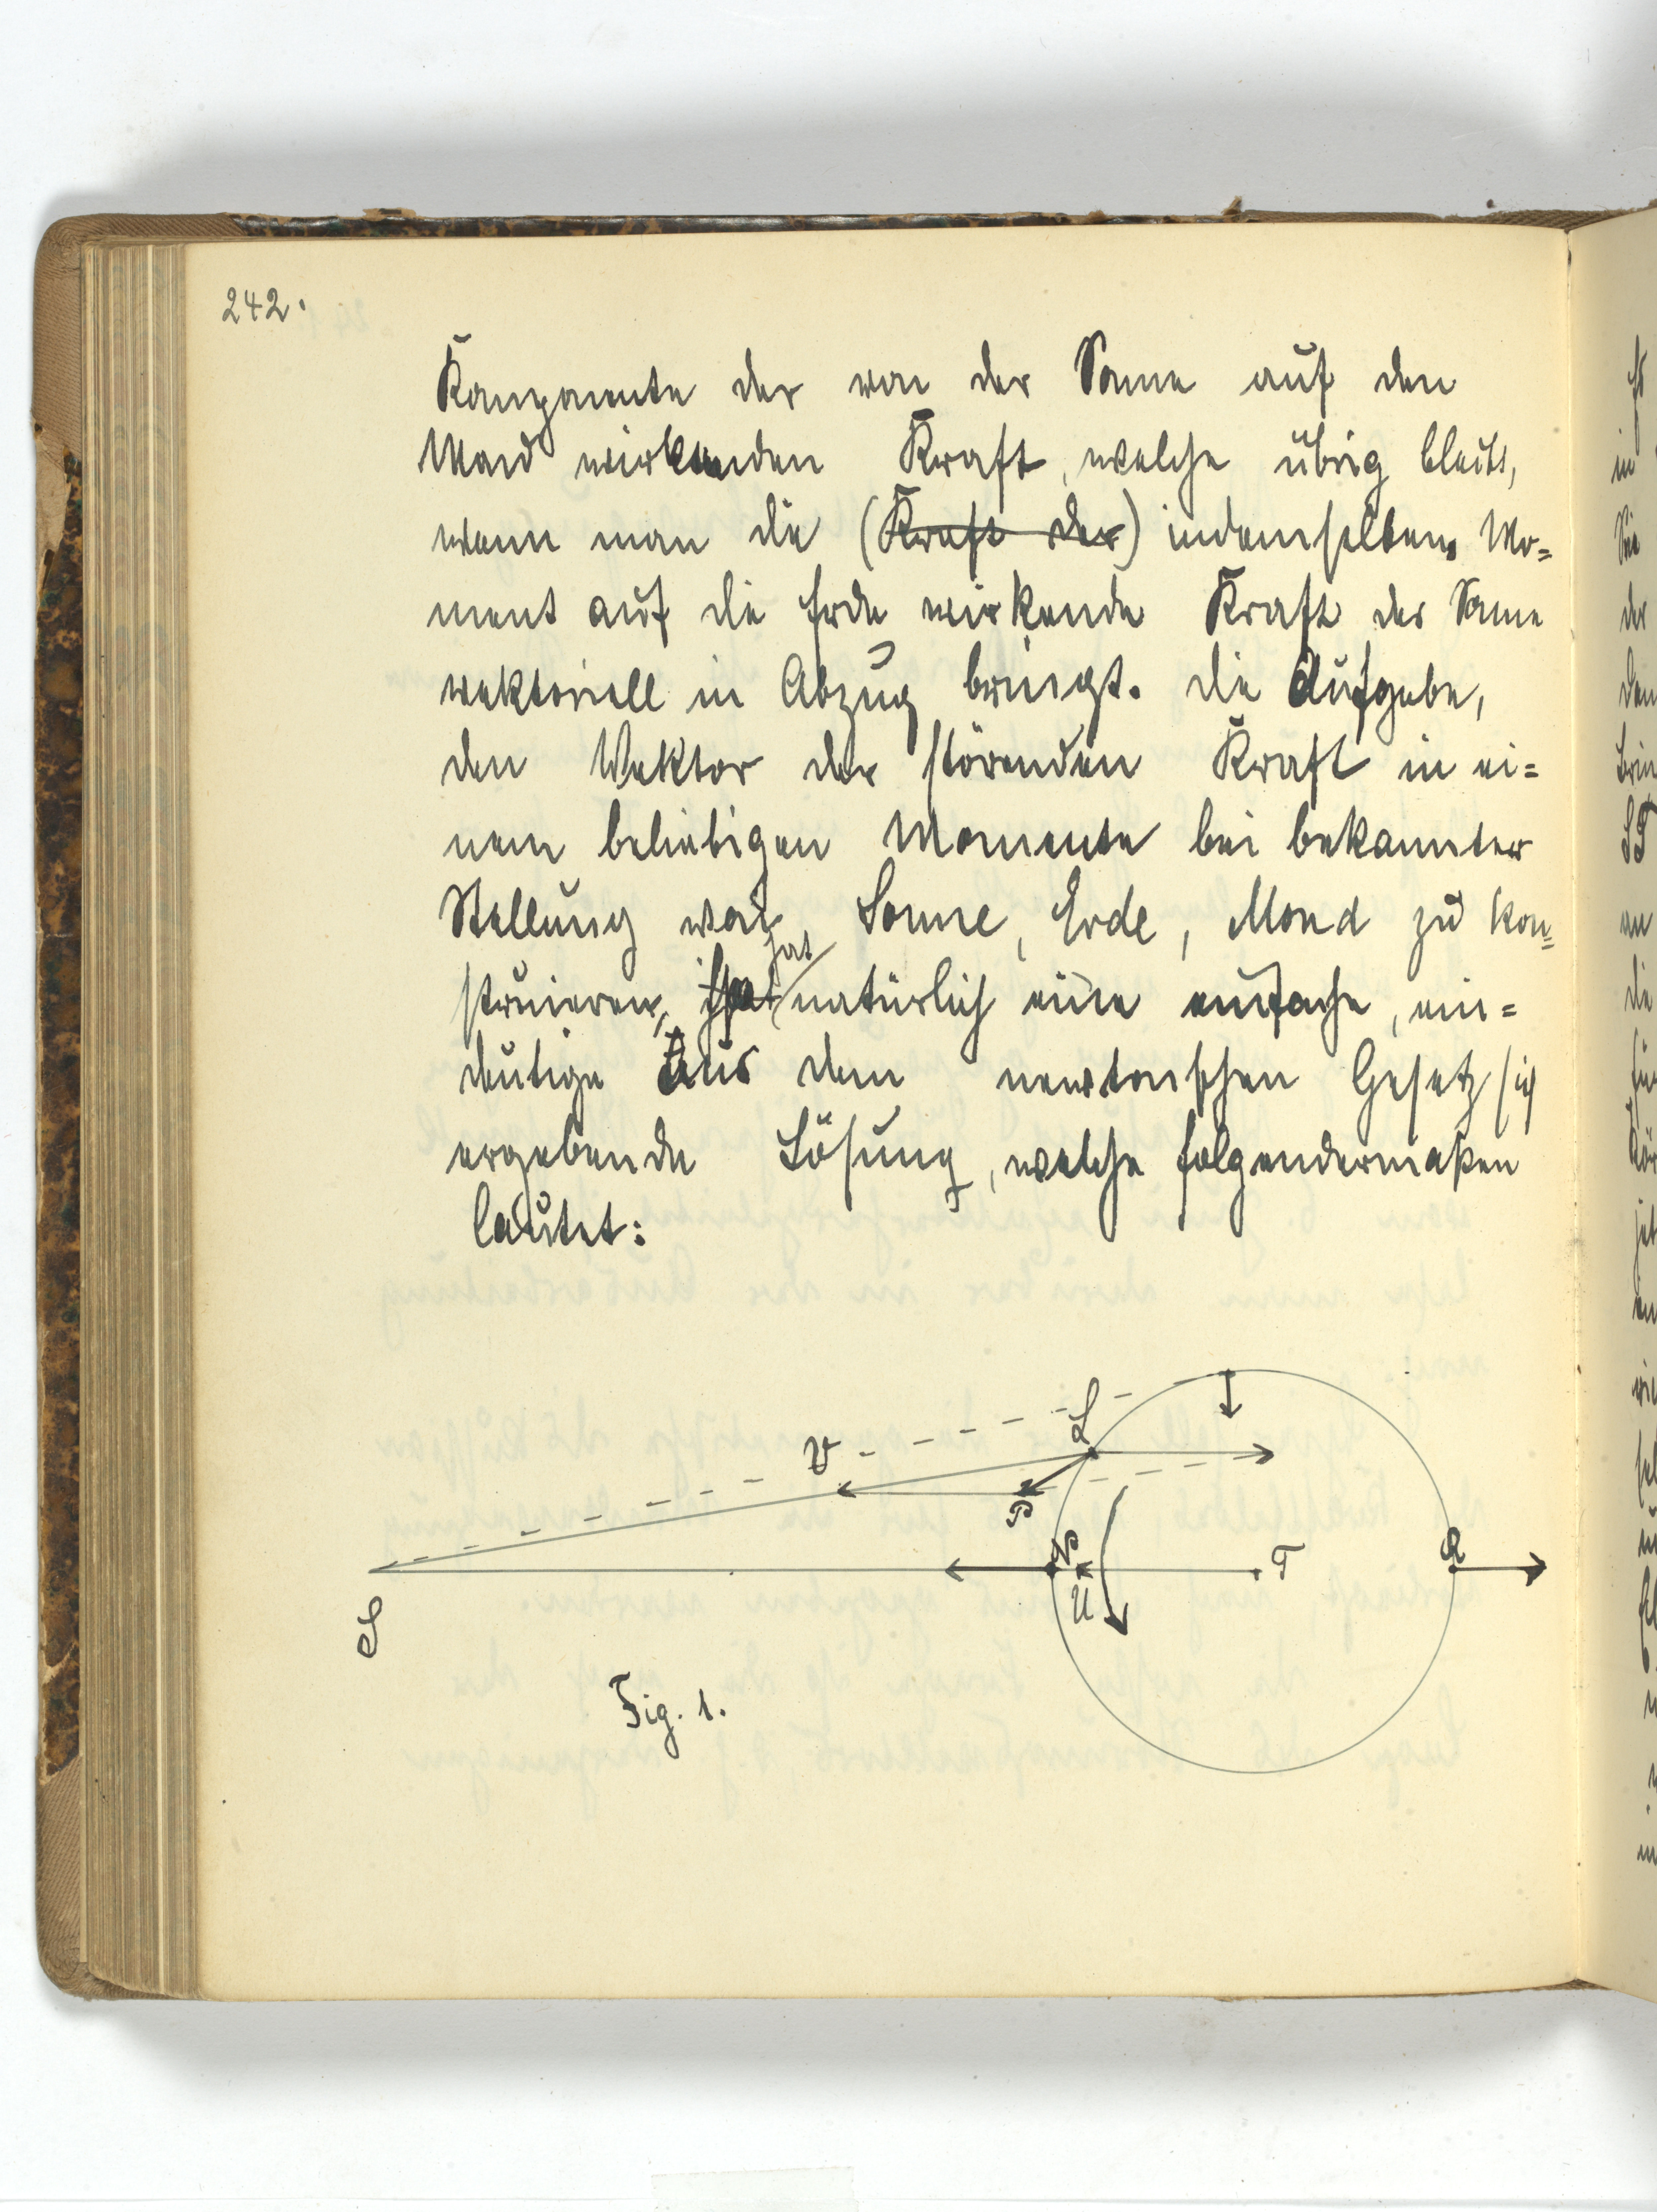 242.
Komponente der von der Sonne auf den
Mond wirkenden Kraft, welche übrig bleibt,
wenn man die (Kraft der) indemselben Mo=
ment auf die Erde wirkende Kraft der Sonne
vektoriell in Abzug bringt. die Aufgabe,
den Vektor der störenden Kraft in ei=
nem beliebigen Momente bei bekannter
Stellung von Sonne, Erde, Mond zu kon=
struieren, hat natürlich eine einfache, ein=
deutige Aus dem newtonschen Gesetz sich
ergebende Lösung, welche folgendermaßen
lautet:
L
V
P
N
U
T
R
S
Fig. 1.